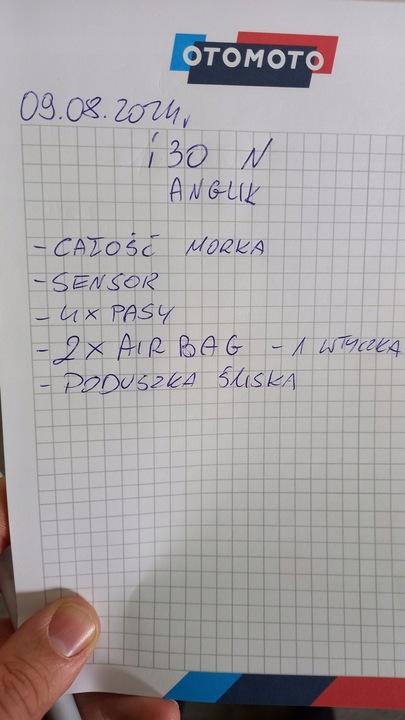 OTOMOTO
09.08.2024r.
i30 N
ANGLIK
- CAŁOŚĆ MORKA
- SENSOR
- 4x PASY
- 2x AIR BAG - 1 WTYCZKA
- PODUSZKA ŚLISKA